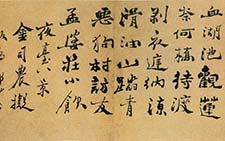 血湖池觀蓮
奈何橋待渡
剥衣納涼
滑油山踏青
惡狗村訪友
孟婆莊小飲
夜臺八景
金司農擬